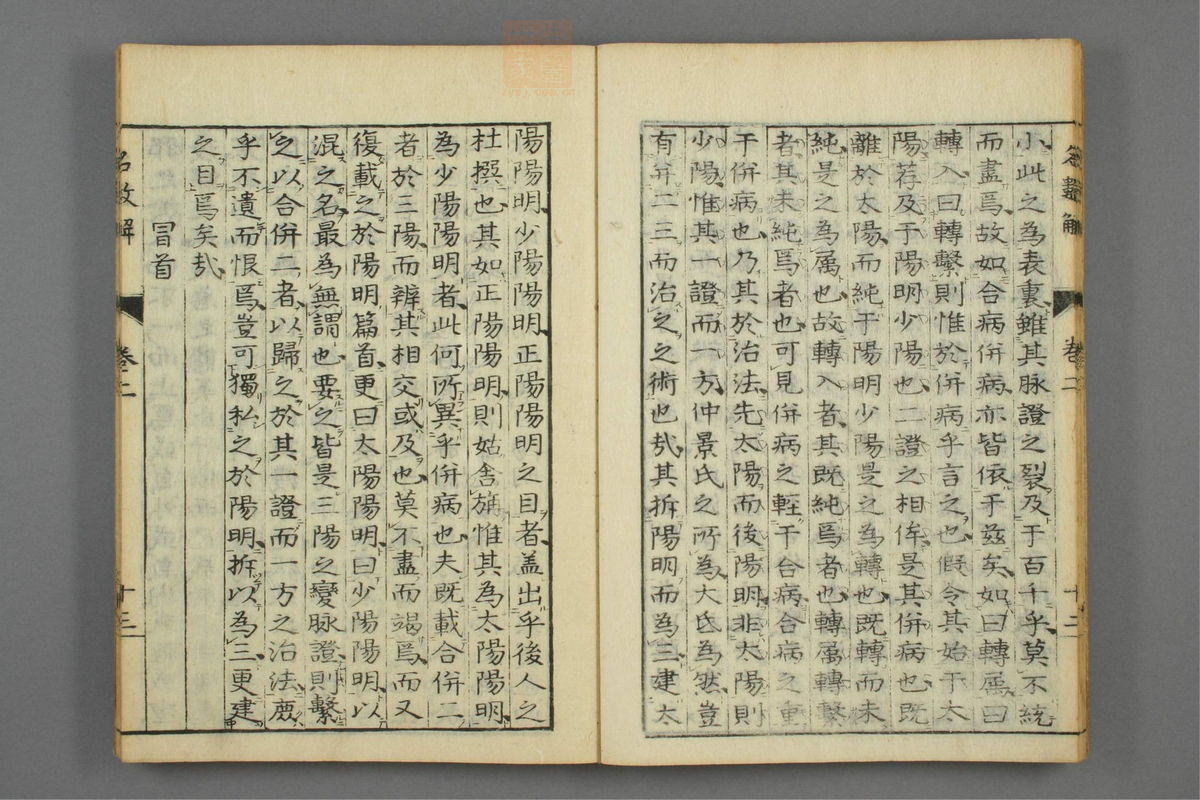 小此之為表裏雖其脉證之裂及于百千乎莫不統
而盡焉故如合病併病亦皆依乎茲矣如曰轉屬曰
轉入曰轉繫則惟於併病乎言之也假令其始于太
陽荐及于陽明少陽也二證之相侔是其併病也既
離於太陽而純于陽明少陽是之為轉也既轉而未
純是之為屬也故轉入者其既純焉者也轉屬轉繫
者其未純焉者也可見併病之輕于合病合病之重
于併病也乃其於治法先太陽而後陽明非太陽則
少陽惟其一證而一方仲景氏之所為大氐為然豈
有并二三而治之之術也哉其拆陽明而為三建太
卷二
十三
陽陽明少陽陽明正陽陽明之目者盖出乎後人之
杜撰也其如正陽陽明則姑舍旃惟其為太陽陽明
為少陽陽明者此何所異乎併病也夫既載合併二
者於三陽而辨其相交或及也莫不盡而竭焉而又
復載之於陽明篇首更曰太陽陽明曰少陽陽明以
混之名最為無謂也要之皆是三陽之變脉證則繫
之以合併二者以歸之於其一證而一方之治法庶
乎不遺而恨焉豈可獨私之於陽明拆以為三更建
之目焉矣哉
冒首
名數解
卷二
十三